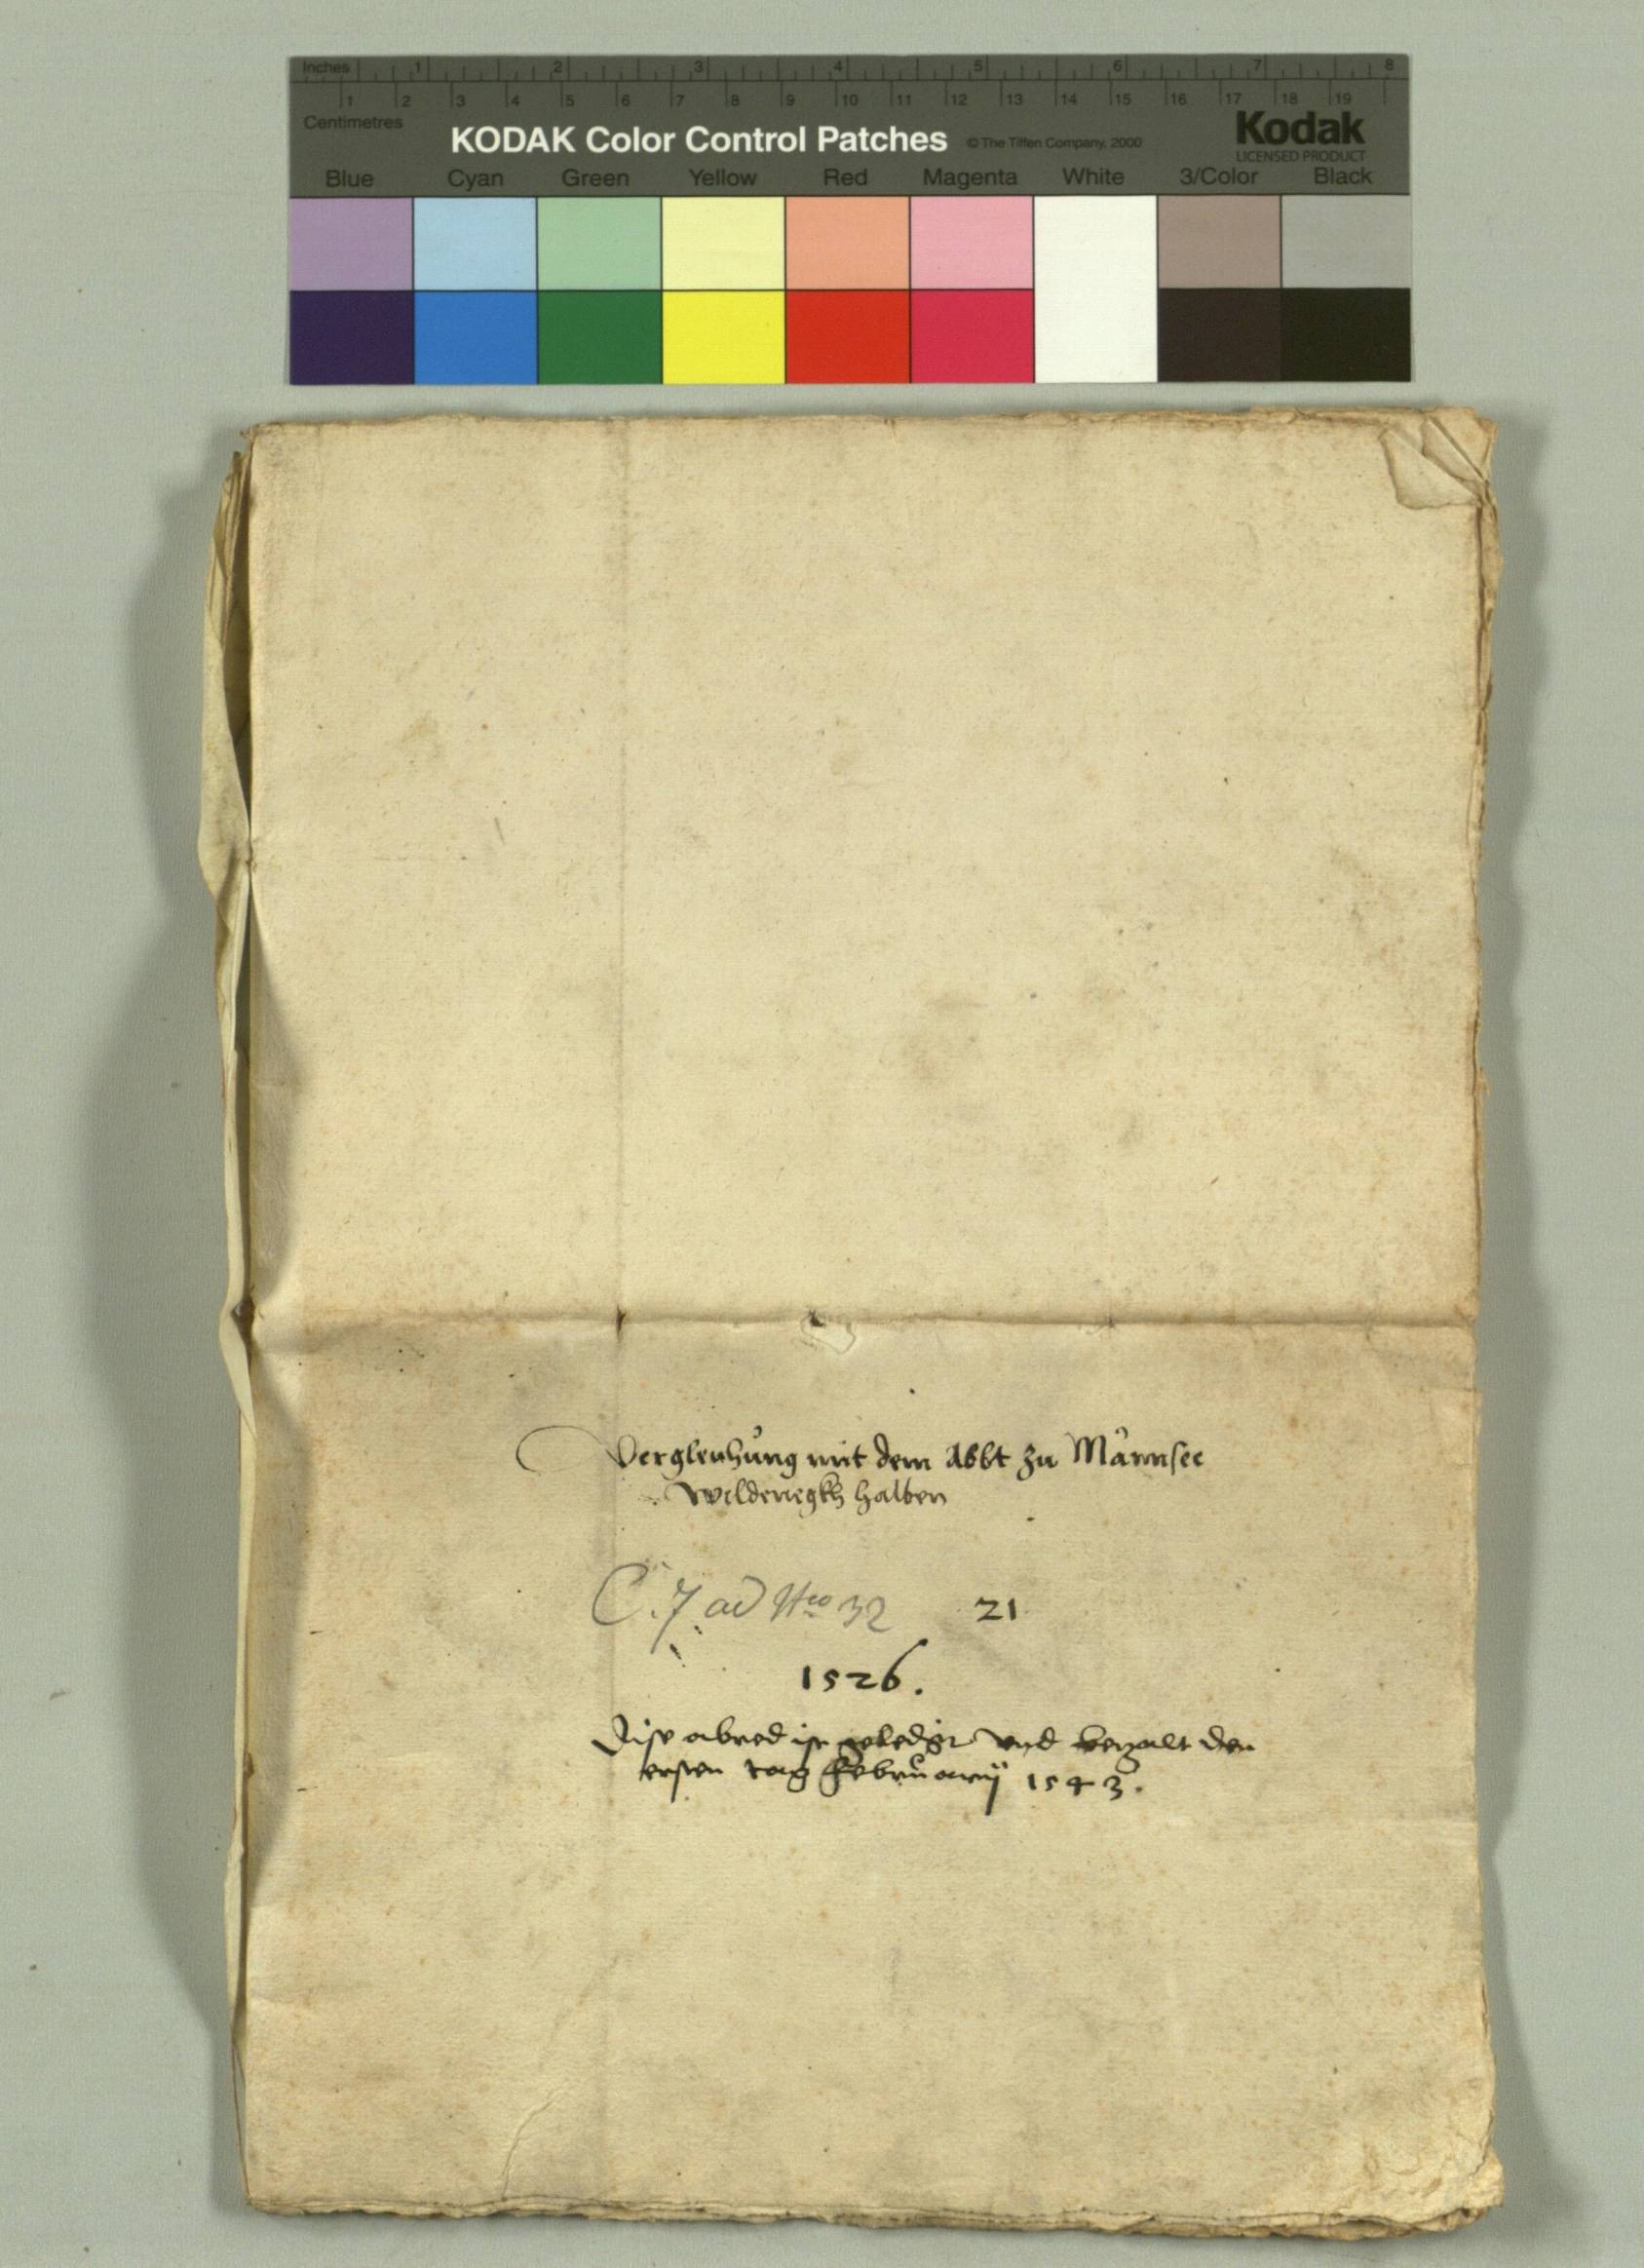 Inches 1 2 3 4 5 6 7 8
1 2 3 4 5 6 7 8 9 10 11 12 13 14 15 16 17 18 19
Centimetres
KODAK Color Control Patches © The Tiffen Company, 2000 Kodak
LICENSED PRODUCT
Blue Cyan Green Yellow Red Magenta White 3/Color Black
Vergleichung mit dem Abbt zu Männsee
Wildenegkh halben
C. 7 ad Nro 32 21
1526.
Dise abred ist geledigt vnd bezalt den
ersten tag februarij 1543.